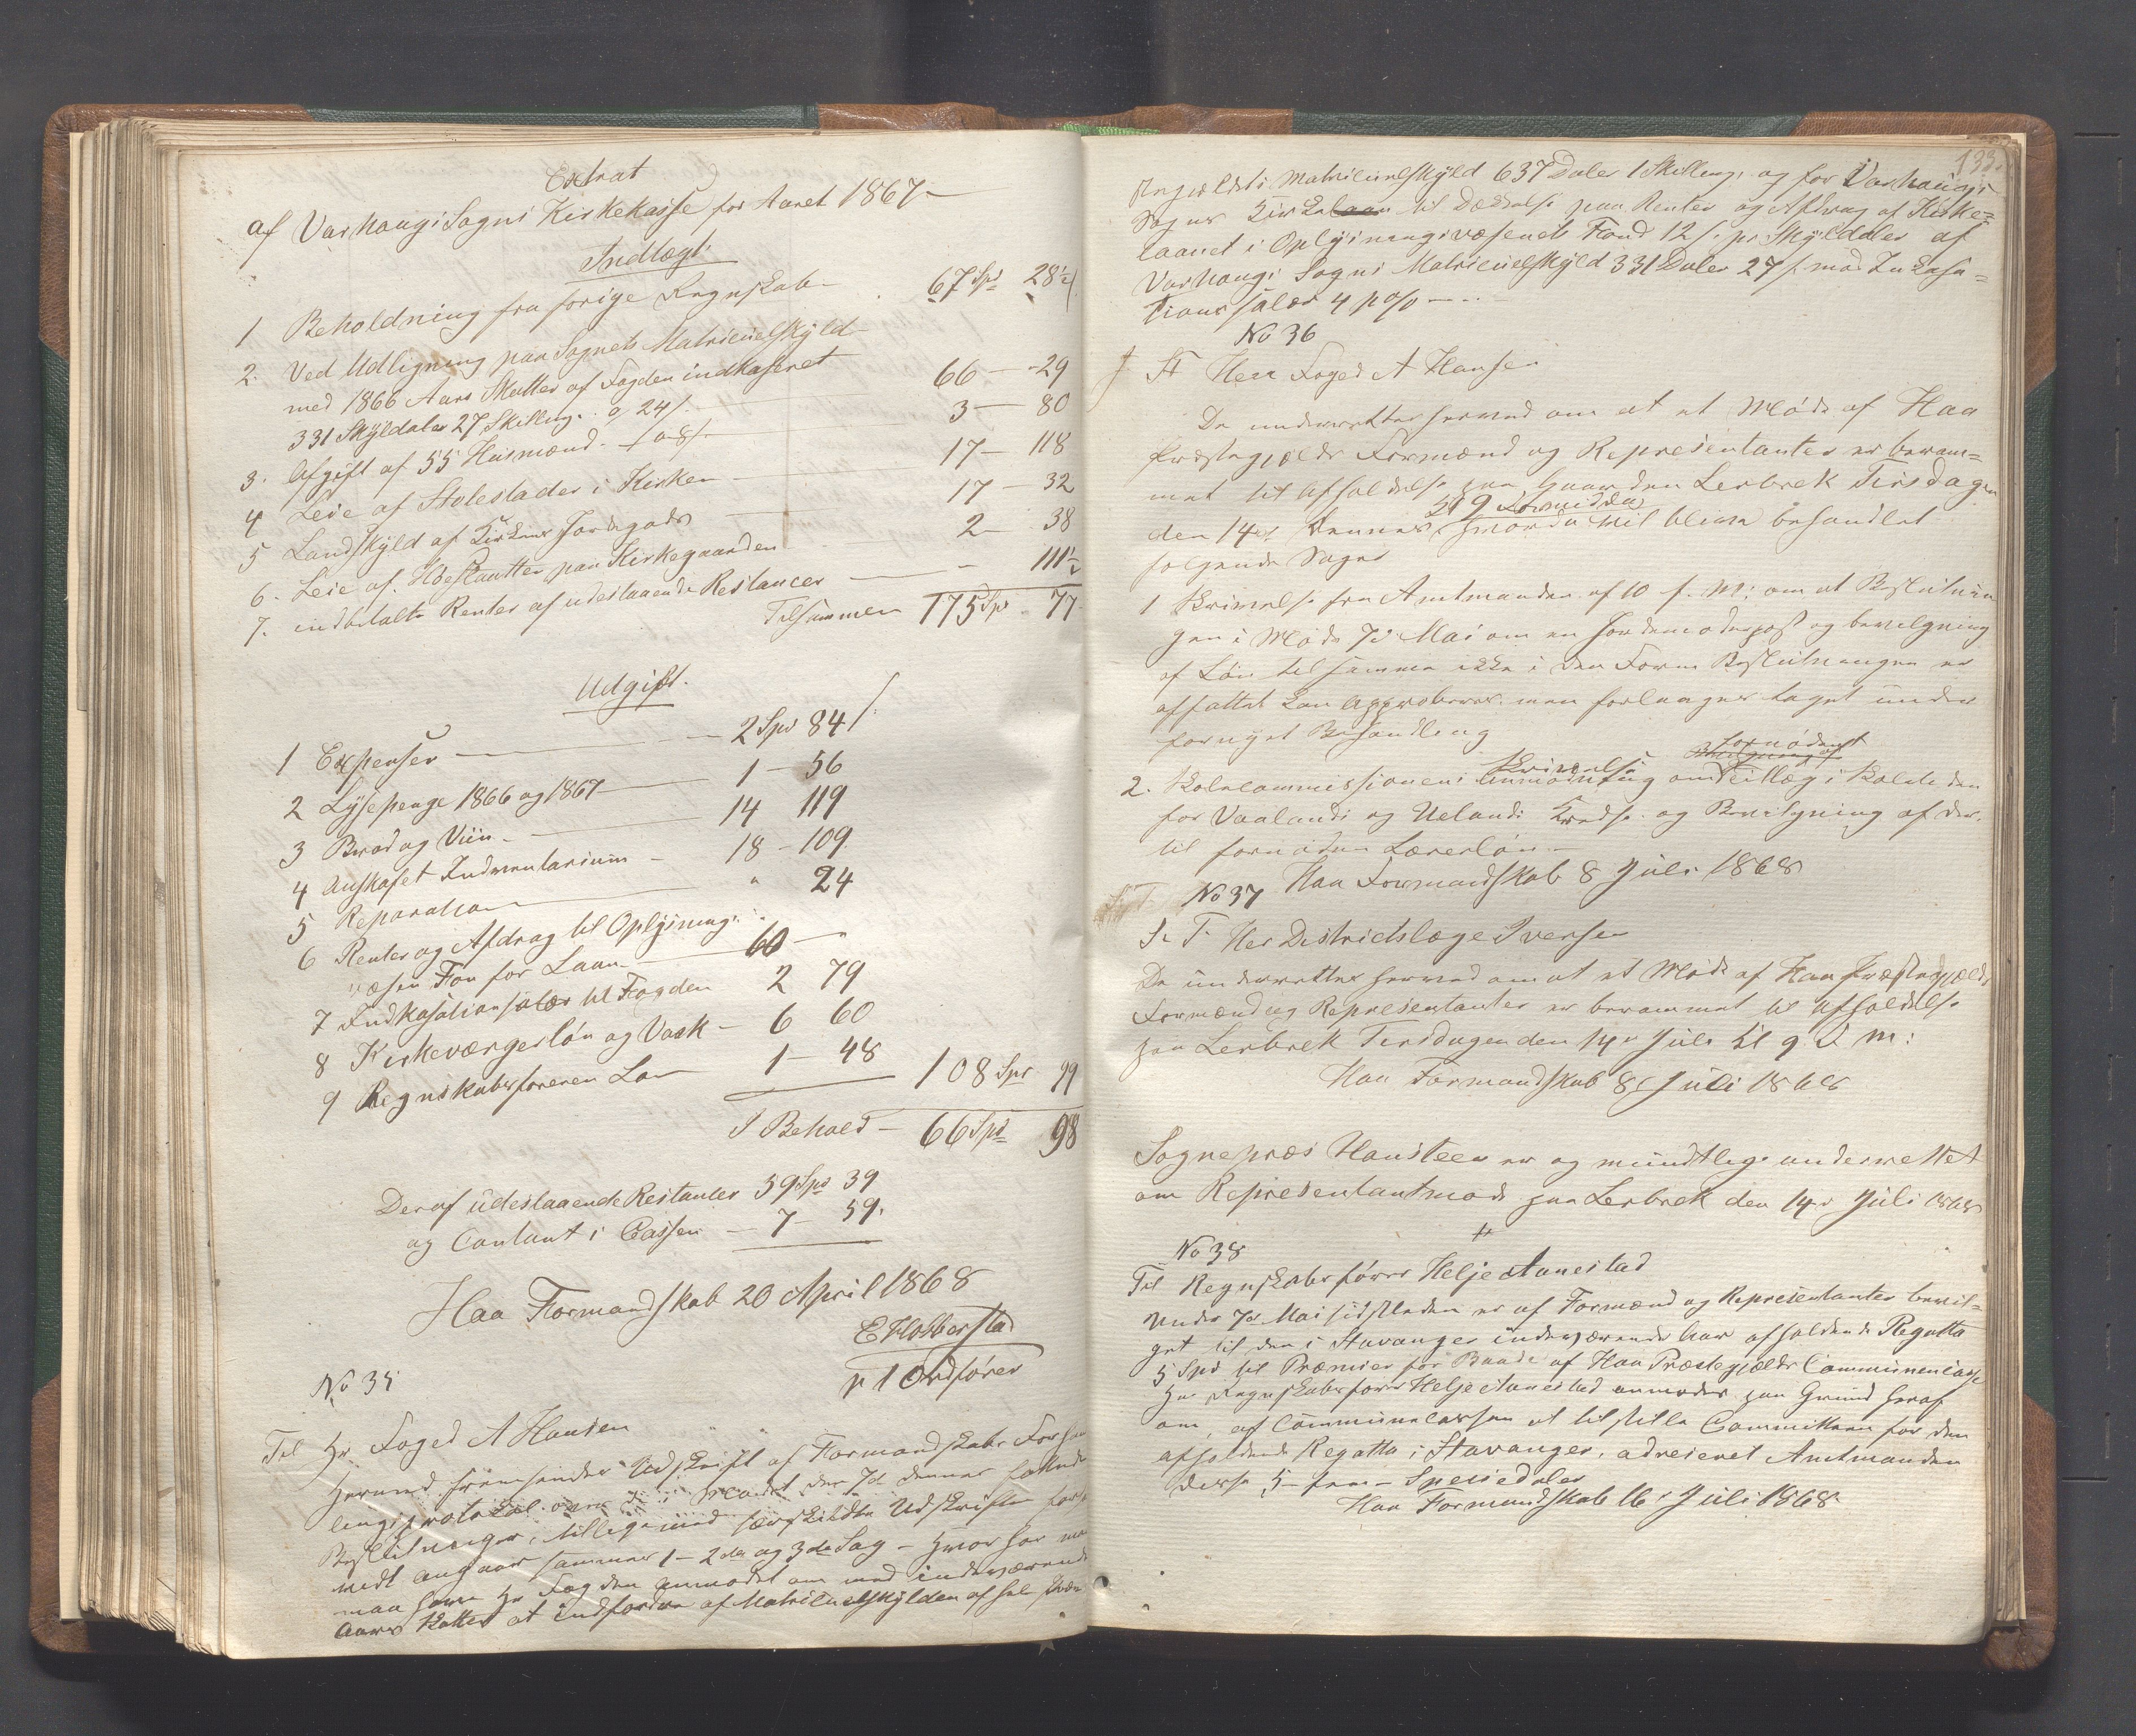 Extrat
af Varhaugs Sogns Kirkekasse for Aaret 1867
Indtægt
1 Beholdning fra forige Regnskab 67 Spd 28½ s
2. Ved Udligning paa Sognets Matriculskyld
med 1866 Aars Skatter af Fogden indkaseret
331 Skyldaler 27 Skilling. a 24 s. 66 - 29
3. Afgift af 55 Husmænd. a 8 s. 3 - 80
4 Leie af Stolestader i Kirken 17 - 118
5 Landskyld af Kirkens Jordegods 17 - 32
6. Leie af Høeslaatten paa Kirkegaarden 2 - 38
7. indbetalte Renter af udestaaende Restancer - 111½
Tilsammen 175 Spd 77
Udgift.
1 Expenser 2 Spd 84 s
2 Lysepenge 1866 og 1867 1 - 56
3 Brød og Viin 14 119
4 Anskafet Indventarium 18 - 109
5 Reparation " 24
6 Renter og Afdrag til Oplysnings
væsen Fon for Laan 60 - "
7 Indkasationsalær til Fogden 2 79
8 Kirkeværgesløn og Vask 6 60
9 Regnskabsføreren Løn 1 - 48 108 Spd 99
I Behold 66 Spd 98
Deraf udestaaende Restanter 59 Spd 39
og Contant i Cassen 7 - 59.
Haa Formandskab 20 April 1868
E Hobberstad
p t Ordfører
No 35
Til Hr Foged A Hansen
Hermed fremsendes Udskrift af Formandskabs Forhand
lingsprotokol over de i Mødet den 7de dennes fattede
Beslutninger, tilligemed særskildte Udskrifter forsa
vidt angaar sammes 1 - 2den og 3die Sag - hvorfor man
maa have Hr Fogden anmodet om med indeværende
Aars Skatter at indfordre af Matriculskylden af hele Præs
133.
stegjeldets Matriculskyld 637 Daler 1 Skilling, og for Varhaugs
Sogns Kirke til Dækkelse paa Renter og Afdrag af Kirke=
laanet i Oplysningsvæsenets Fond 12 s. pr Skyldaler af
Varhaugs Sogns Matriculskyld 331 Daler 27 s. mod Inkasa=
tionssalær 4 p%
No 36
S T Herr Foged A Hansen
De underrettes herved om at et Møde af Haa
Præstegjelds Formænd og Representanter er beram=
met til Afholdelse paa Gaarden Lerbrek Tirsdagen
Kl 9 Formiddag
den 14de dennes, hvorda vil blive behandlet
følgende Sager
1 Skrivelse fra Amtmanden af 10 f. M: om at Beslutnin
gen i Møde 7de Mai om en Jordemoderpost og bevilgning
af Løn til samme ikke i den Form Beslutningen er
affattet kan approberes. men forlanges taget under
fornyet Behandling
Skrivelse fornødent
2. Skolecommissionens Anmodning om Tillæg i Skoletiden
for Vaalands og Uelands Kredse. og Bevilgning af der.
til fornøden Lærerløn
Haa Formandskab 8 Juli 1868
No 37
S. T. Her Districtslæge Iversen
De underrettes herved om at et Møde af Haa Præstegjælds
Formænd og Representanter er berammet til Afholdelse
paa Lerbrek Tirsdagen den 14de Juli Kl 9 F M:
Haa Formandskab 8de Juli 1868
Sognepræs Hansteen er og mundtlige underrettet
om Representantmøde paa Lerbrek den 14de Juli 1868
No 38
Til Regnskabsfører Helje Aanestad
Under 7de Mai sidstleden er af Formænd og Representanter bevil=
get til den i Stavanger indeværende Aar afholdende Regatta
5 Spd til Præmier for Baade af Haa Præstegjælds Communecasse
Hr Regnskabsfører Helje Aanestad anmodes paa Grund heraf
om, af Communecassen at tilstille Committeen for den
afholdende Regatta i Stavanger, adreseret Amtmanden
disse 5 - fem - Speciedaler
Haa Formandskab 16de Juli 1868